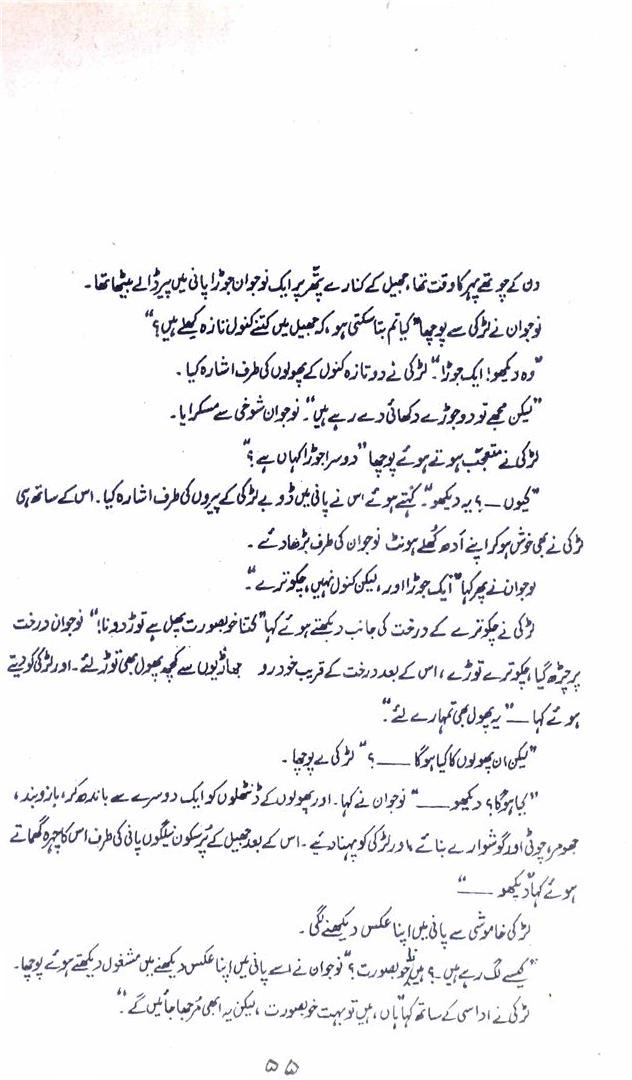 دن کے چوتھے پہر کا وقت تھا، جھیل کے کنارے پتھّر پر ایک نوجوان جوڑا پانی میں پیر ڈالے بیٹھا تھا۔
نوجوان نے لڑکی سے پوچھا "کیا تم بتا سکتی ہو، کہ جھیل میں کتنے کنول تازہ کھلے ہیں؟"
"وہ دیکھو! ایک جوڑا"۔ لڑکی نے دو تازہ کنول کے پھولوں کی طرف اشارہ کیا۔
"لیکن مجھے تو دو جوڑے دکھائی دے رہے ہیں"۔ نوجوان شوخی سے مسکرایا۔
لڑکی نے متعجّب ہوتے ہوئے پوچھا "دوسرا جوڑا کہاں ہے؟"
"کیوں ــ؟ یہ دیکھو"۔ کہتے ہوئے اس نے پانی میں ڈوبے لڑکی کے پیروں کی طرف اشارہ کیا۔ اس کے ساتھ ہی
لڑکی نے بھی خوش ہو کر اپنے اَدھ کھُلے ہونٹ نوجوان کی طرف بڑھا دئے۔
نوجوان نے پھر کہا "ایک جوڑا اور، لیکن کنول نہیں، چکوترے"۔
لڑکی نے چکوترے کے درخت کی جانب دیکھتے ہوئے کہا "کتنا خوبصورت پھل ہے توڑ دو نا!" نوجوان درخت
پر چڑھ گیا، چکوترے توڑے، اس کے بعد درخت کے قریب خودرو جھاڑیوں سے کچھ پھول بھی توڑ لئے۔ اور لڑکی کو دیتے
ہوئے کہا ــ "یہ پھول بھی تمہارے لئے"۔
"لیکن ان پھولوں کا کیا ہوگا ــــ؟" لڑکی نے پوچھا۔
"کیا ہوگا؟ دیکھو ــــ" نوجوان نے کہا۔ اور پھولوں کے ڈنٹھلوں کو ایک دوسرے سے باندھ کر، بازوبند،
جھومر، چوٹی اور گوشوارے بنائے، اور لڑکی کو پہنا دئیے۔ اس کے بعد جھیل کے پُرسکون نیلگوں پانی کی طرف اس کا چہرہ گھماتے
ہوئے کہا "دیکھو ــــ"
لڑکی خاموشی سے پانی میں اپنا عکس دیکھنے لگی۔
"کیسے لگ رہے ہیں۔؟ ہیں نا خوبصورت؟" نوجوان نے اسے پانی میں اپنا عکس دیکھنے میں مشغول دیکھتے ہوئے پوچھا۔
لڑکی نے اداسی کے ساتھ کہا "ہاں، ہیں تو بہت خوبصورت، لیکن یہ ابھی مُرجھا جائیں گے"۔
۵۵